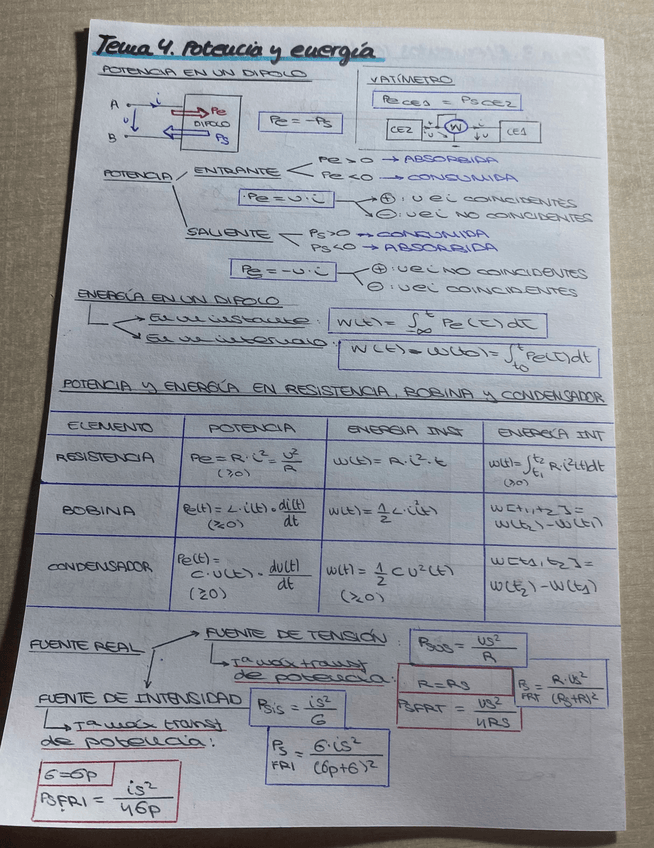 Tema 4. Potencia y energía
POTENCIA EN UN DIPOLO
A i Pe
u DIPOLO
B Ps
Pe = -Ps
VATÍMETRO
Pe CE1 = Ps CE2
CE2 u i W i u CE1
POTENCIA
ENTRANTE
Pe > 0 → ABSORBIDA
Pe < 0 → CONSUMIDA
Pe = u · i
⊕ : u e i COINCIDENTES
⊖ : u e i NO COINCIDENTES
SALIENTE
Ps > 0 → CONSUMIDA
Ps < 0 → ABSORBIDA
Ps = -u · i
⊕ : u e i NO COINCIDENTES
⊖ : u e i COINCIDENTES
ENERGÍA EN UN DIPOLO
→ En un instante: W(t) = ∫_{-∞}^{t} Pe(τ) dτ
→ En un intervalo: W(t) - W(t0) = ∫_{t0}^{t} Pe(τ) dt
POTENCIA Y ENERGÍA EN RESISTENCIA, BOBINA Y CONDENSADOR
ELEMENTO POTENCIA ENERGIA INST ENERGÍA INT
RESISTENCIA Pe = R · i² = u²/R (≥0) w(t) = R · i² · t w(t) = ∫_{t1}^{t2} R · i²(t) dt (≥0)
BOBINA Pe(t) = L · i(t) · di(t)/dt (≥0) w(t) = 1/2 L · i²(t) W[t1, t2] = W(t2) - W(t1)
CONDENSADOR Pe(t) = C · u(t) · du(t)/dt (≥0) w(t) = 1/2 C u²(t) (≥0) W[t1, t2] = W(t2) - W(t1)
FUENTE REAL
FUENTE DE TENSIÓN: Psus = us²/R
→ Tª máx transf
de potencia:
R = Rs
PsFRT = us²/4Rs
Ps FRT = R · us²/(Rs+R)²
FUENTE DE INTENSIDAD
Psis = is²/G
→ Tª máx transf
de potencia:
Ps FRI = G · is²/(Gp+G)²
G = Gp
PsFRI = is²/4Gp